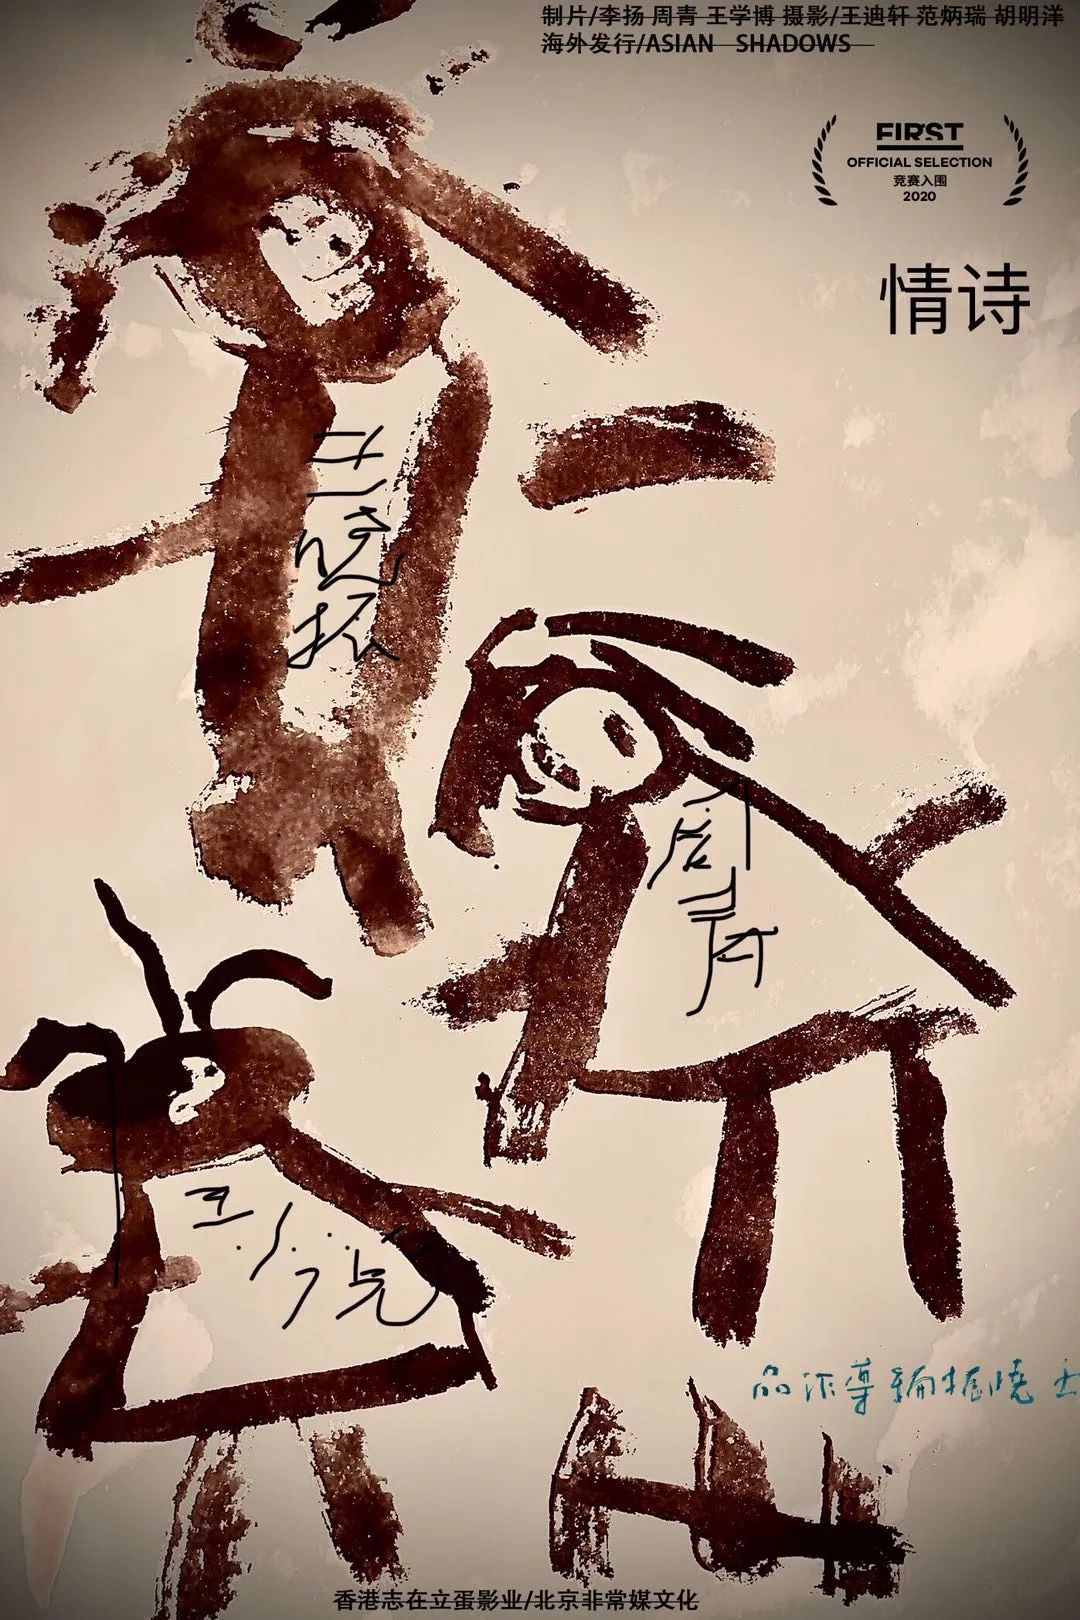 制片/李扬 周青 王学博 摄影/王迪轩 范炳瑞 胡明洋
海外发行/ASIAN SHADOWS
FIRST
OFFICIAL SELECTION
竞赛入围
2020
情诗
王晓振
周青
王小
品作導編振曉王
香港志在立蛋影业/北京非常媒文化